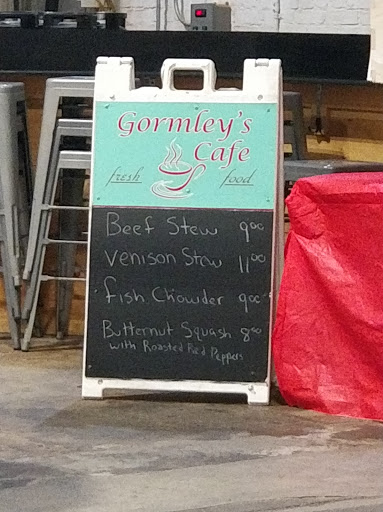 Gormley's
Cafe
fresh food
Beef Stew 9.00
Venison Stew 11.00
Fish Chowder 9.00
Butternut Squash 8.00
with Roasted Red Peppers